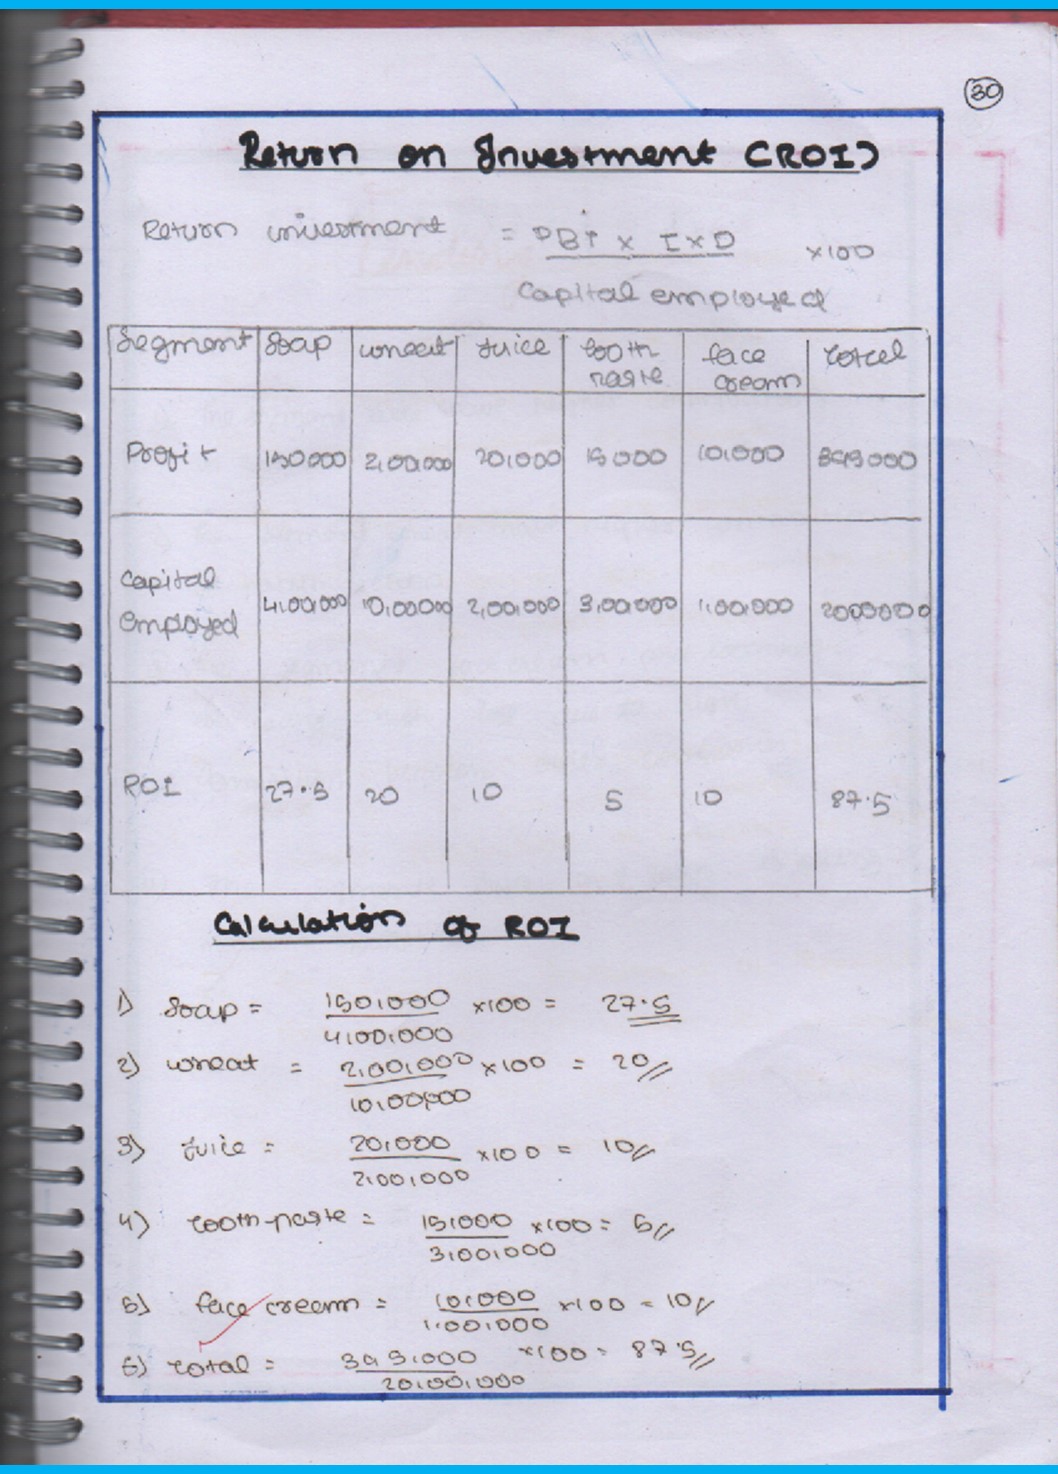 30
Return on Investment (ROI)
Return investment = PBIT x I x D x100
Capital employed
Segment Soap wheat Juice tooth paste face cream total
Profit 150000 2,00,000 20,000 15000 10,000 395000
Capital Employed 4,00,000 10,00000 2,00,000 3,00,000 1,00,000 2000000
ROI 27.5 20 10 5 10 87.5
Calculation of ROI
1) Soap = 150,000 x100 = 27.5
4,00,000
2) wheat = 2,00,000 x100 = 20//
10,00,000
3) Juice = 20,000 x100 = 10//
2,00,000
4) tooth-paste = 15,000 x100 = 5//
3,00,000
5) face cream = 10,000 x100 = 10//
1,00,000
6) total = 395,000 x100 = 87.5//
20,00,000